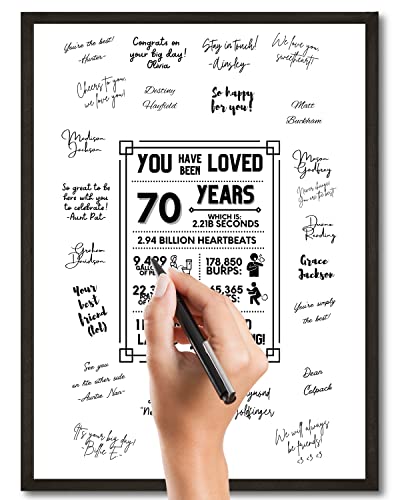 You're the best!
-Hunter-
Congrats on
your big day!
Olivia
Stay in touch!
-Ainsley-
We love you,
sweetheart!
Cheers to you,
we love you!
Destiny
Hayfield
So happy
for you!
Matt
Buckham
Madison
Jackson
Mason
Godfrey
So great to be
here with you
to celebrate!
-Aunt Pat-
You are the best
Duane
Reading
Graham
Davidson
Grace
Jackson
Your
best
friend
(lol)
You're simply
the best!
See you
on the other side
-Auntie Nan-
Dean
Colpack
It's your big day!
Billie E.
We will always
be friends!
<3 <3 <3
YOU HAVE BEEN LOVED
70 YEARS
WHICH IS:
2.21B SECONDS
2.94 BILLION HEARTBEATS
178,850
BURPS:
65,365